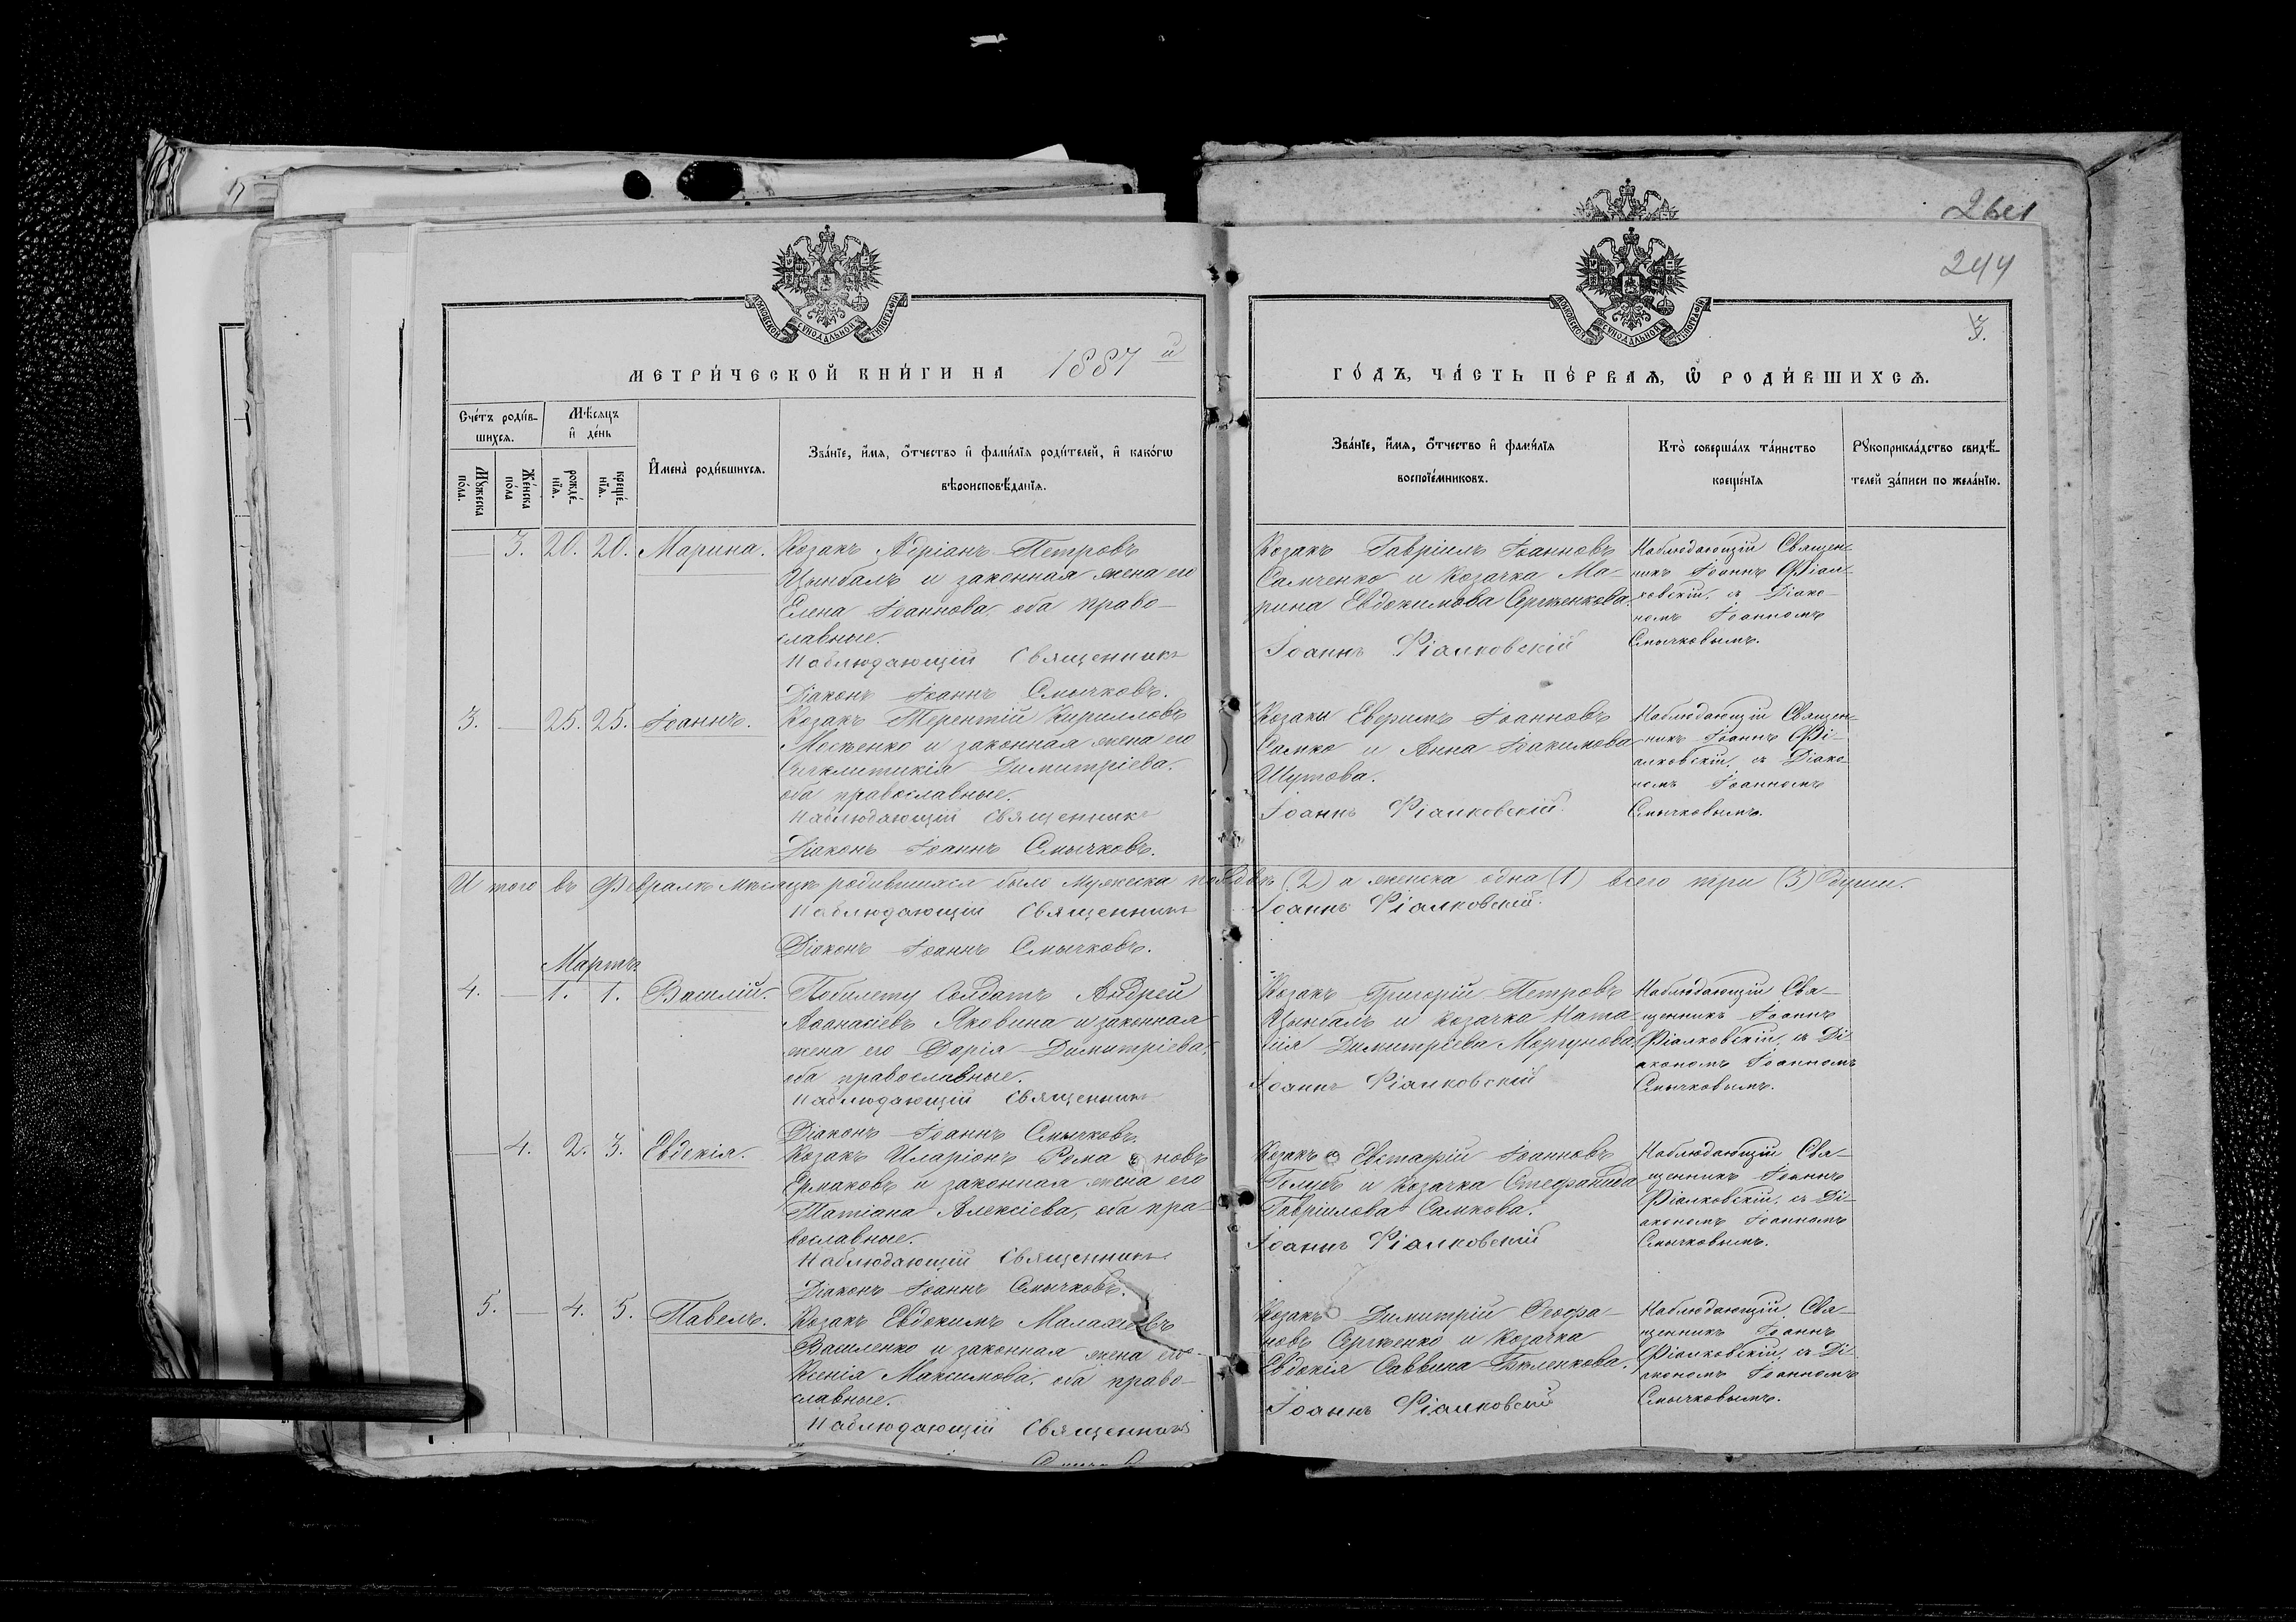 2611
244
3.
МОСКОВСКОЙ СѴНОДАЛЬНОЙ ТИПОГРАФІИ
МОСКОВСКОЙ СѴНОДАЛЬНОЙ ТИПОГРАФІИ
МЕТРИ́ЧЕСКОЙ КНИ́ГИ НА 1887 й
ГО́ДЪ, ЧА́СТЬ ПЕ́РВАѦ, Ѿ РОДИ́ВШИХСѦ.
Сче́тъ роди́в-
шихсѧ.
Мѣ́сѧцъ
и҆ де́нь
Мꙋ́жеска
по́ла.
Же́нска
по́ла
рожде́-
нїѧ.
креще́-
нїѧ.
И҆мена̀ роди́вшихсѧ.
Зва́нїе, и҆́мѧ, ѻ҆́тчество и҆ фами́лїѧ роди́телей, и҆ како́гѡ
вѣроисповѣ́данїѧ.
Зва́нїе, и҆́мѧ, ѻ҆́тчество и҆ фами́лїѧ
воспрїе́мниковъ.
Кто̀ соверша́лъ та́инство
креще́нїѧ
Рꙋкоприкла́дство свидѣ́-
телей за́писи по жела́нїю.
— 3. 20. 20. Марина.
Козакъ Адріанъ Петровъ
Цымбалъ и законная жена его
Елена Іоаннова, оба право-
славные.
Наблюдающій Священникъ
Діаконъ Іоаннъ Смычковъ.
Козакъ Гавріилъ Іоанновъ
Самченко и Козачка Ма-
рина Евдокимова Сергѣенкова.
Іоаннъ Фіалковскій
Наблюдающій Священ-
никъ Іоаннъ Фіал-
ковскій, съ Діако-
номъ Іоанномъ
Смычковымъ.
3. — 25. 25. Іоаннъ.
Козакъ Терентій Кирилловъ
Мосѣенко и законная жена его
Синклитикія Димитріева.
оба православные.
Наблюдающій Священникъ
Діаконъ Іоаннъ Смычковъ.
Козаки Евфимъ Іоанновъ
Самко и Анна Іоакимова
Шутова.
Іоаннъ Фіалковскій
Наблюдающій Священ-
никъ Іоаннъ Фі-
алковскій, съ Діако-
номъ Іоанномъ
Смычковымъ.
И того въ Февралѣ Мѣсяцѣ родившихся было мужеска пола два (2) а женска одна (1) всего три (3) души.
Наблюдающій Священникъ Іоаннъ Фіалковскій
Діаконъ Іоаннъ Смычковъ.
Мартъ
4. — 1. 1. Василій.
Побилету Солдатъ Андрей
Аѳанасіевъ Яковина и законная
жена его Дарія Димитріева,
оба православные.
Наблюдающій Священникъ
Діаконъ Іоаннъ Смычковъ.
Козакъ Григорій Петровъ
Цымбалъ и козачка Ната-
лія Димитріева Моргунова.
Іоаннъ Фіалковскій
Наблюдающій Свя-
щенникъ Іоаннъ
Фіалковскій, съ Ді-
акономъ Іоанномъ
Смычковымъ.
— 4. 2. 3. Евдокія.
Козакъ Иларіонъ Рома новъ
Ермаковъ и законная жена его
Татіана Алексіева, оба пра-
вославные.
Наблюдающій Священникъ
Діаконъ Іоаннъ Смычковъ.
Козакъ Евстафій Іоанновъ
Голубъ и Козачка Стефанида
Гавріилова Самкова.
Іоаннъ Фіалковскій
Наблюдающій Свя-
щенникъ Іоаннъ
Фіалковскій, съ Ді-
акономъ Іоанномъ
Смычковымъ.
5. — 4. 5. Павелъ.
Козакъ Евдокимъ Малахіевъ
Василенко и законная жена его
Ксенія Максимова, оба право-
славные.
Наблюдающій Священникъ
Козакъ Димитрій Феофа-
новъ Сергѣенко и Козачка
Евдокія Саввина Бѣленкова.
Іоаннъ Фіалковскій
Наблюдающій Свя-
щенникъ Іоаннъ
Фіалковскій, съ Ді-
акономъ Іоанномъ
Смычковымъ.